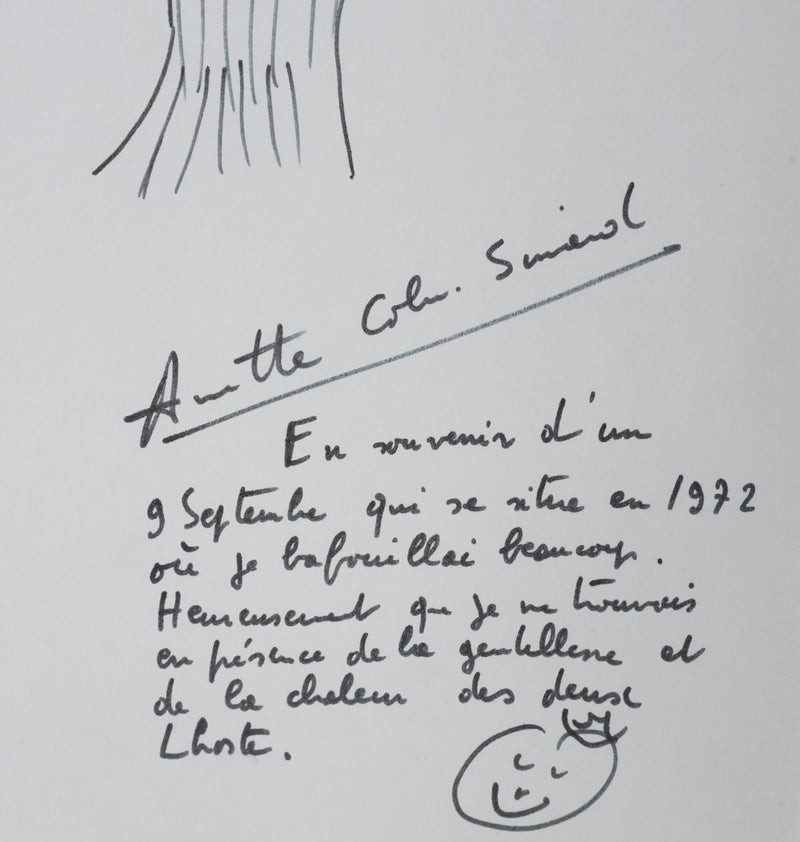 Annette Colin. Simiand
En souvenir d'un
9 Septembre qui se situe en 1972
où je bafouillai beaucoup.
Heureusement que je me trouvais
en présence de la gentillesse et
de la chaleur des deux
Lhoste.